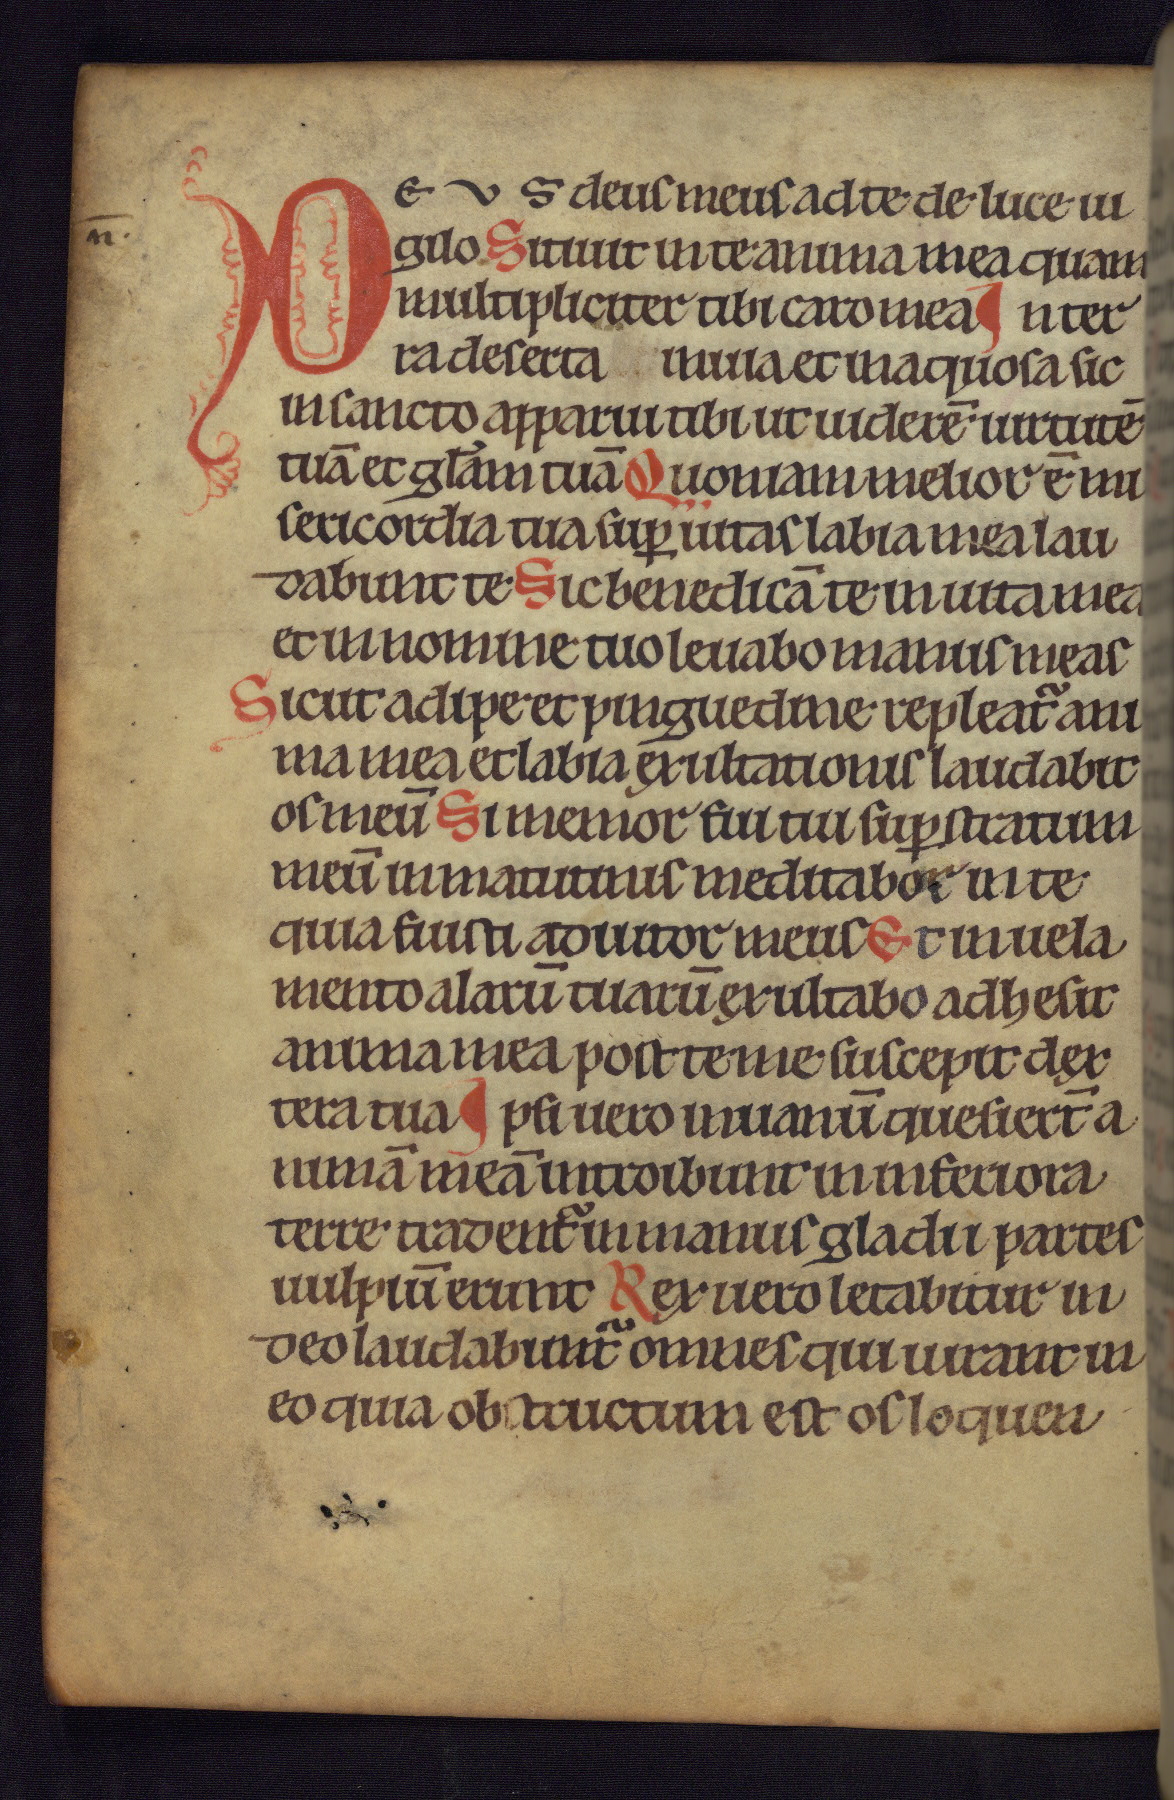 n̄.
DEUS deus meus ad te de luce ui
gilo Sitiuit in te anima mea quam
multipliciter tibi caro mea In ter
ra deserta inuia et inaquosa sic
in sancto apparui tibi ut uiderē uirtutē
tuā et gl̄am tuā Quoniam melior ē mi
sericordia tua suꝑ uitas labia mea lau
dabunt te Sic benedicā te in uita mea
et in nomine tuo leuabo manus meas
Sicut adipe et pinguedine repleat᷑ ani
ma mea et labia exultationis laudabit
os meū Si memor fui tui suꝑ stratum
meū in matutinis meditabor in te
quia fuisti adiutor meus Et in uela
mento alarū tuarū exultabo adhesit
anima mea post te me suscepit dex
tera tua Ipsi uero in uanū quesiert̄ a
nimā meā introibunt in inferiora
terre tradent᷑ in manus gladii partes
uulpiū erunt Rex uero letabitur in
deo laudabunt᷑ omnes qui iurant in
eo quia obstructum est os loquen